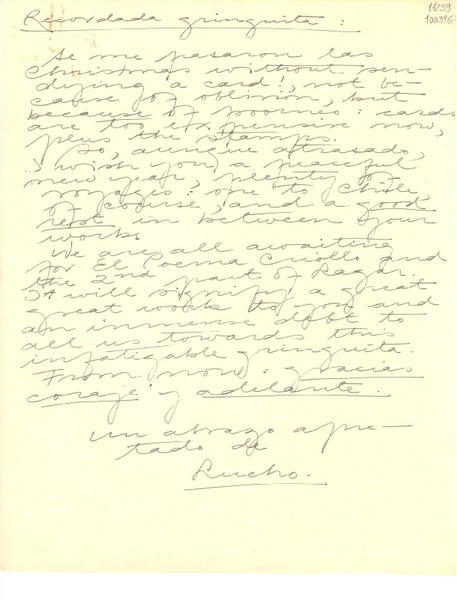 17259
100316
Recordada gringuita :
Se me pasaron las
Christmas without sen-
dying a card!, not be-
cause of oblivion, but
because of poorness : cards
are too expensive now,
plus the stamps.
So, aunque atrasado,
I wish you a peaceful
new year, plenty of
voyages : one to Chile
of course, and a good
rest in between your
work.
We are all awaiting
for El Poema Criollo and
the 2nd part of Lagar.
It will signify a great
great work to you and
an inmense debt to
all us towards this
infatigable gringuita.
From now : gracias
coraje y adelante.
un abrazo apre-
tado de
Lucho.